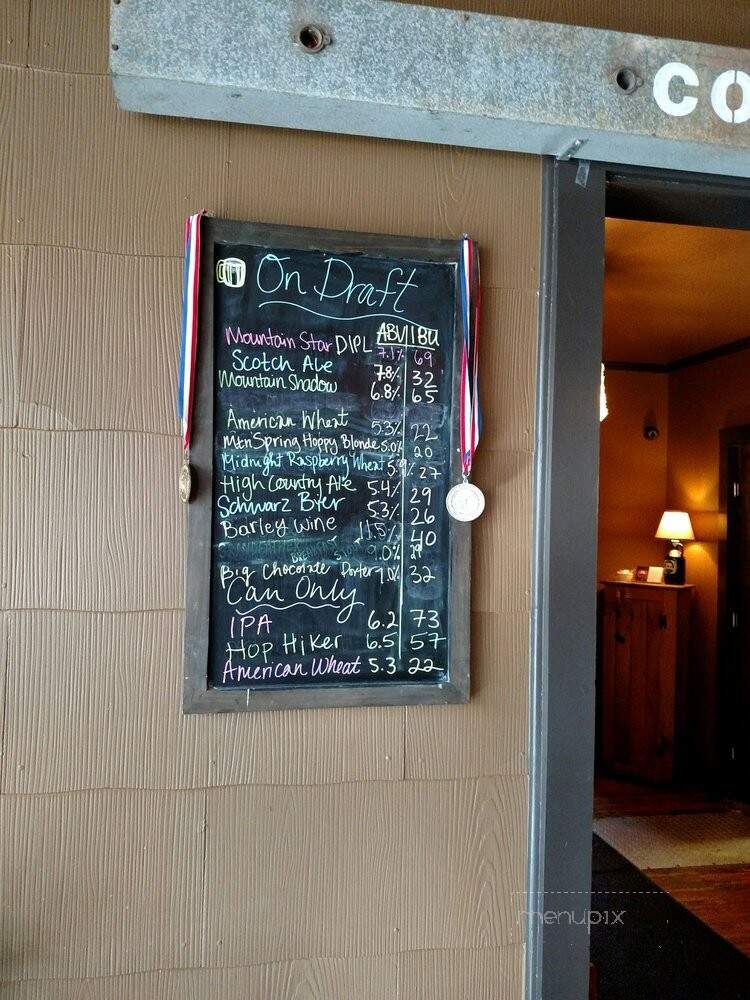 CO
On Draft
ABV IBU
Mountain Star DIPL 7.1% 69
Scotch Ale 7.8% 32
Mountain Shadow 6.8% 65
American Wheat 5.3% 22
Mtn Spring Hoppy Blonde 5.0% 20
Midnight Raspberry Wheat 5.9% 27
High Country Ale 5.4% 29
Schwarz Bier 5.3% 26
Barley Wine 11.5% 40
9.0% 29
Big Chocolate Porter 9.0% 32
Can Only
IPA 6.2 73
Hop Hiker 6.5 57
American Wheat 5.3 22
menupix